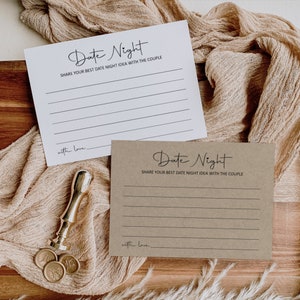 Date Night
SHARE YOUR BEST DATE NIGHT IDEA WITH THE COUPLE
with love,
Date Night
SHARE YOUR BEST DATE NIGHT IDEA WITH THE COUPLE
with love,